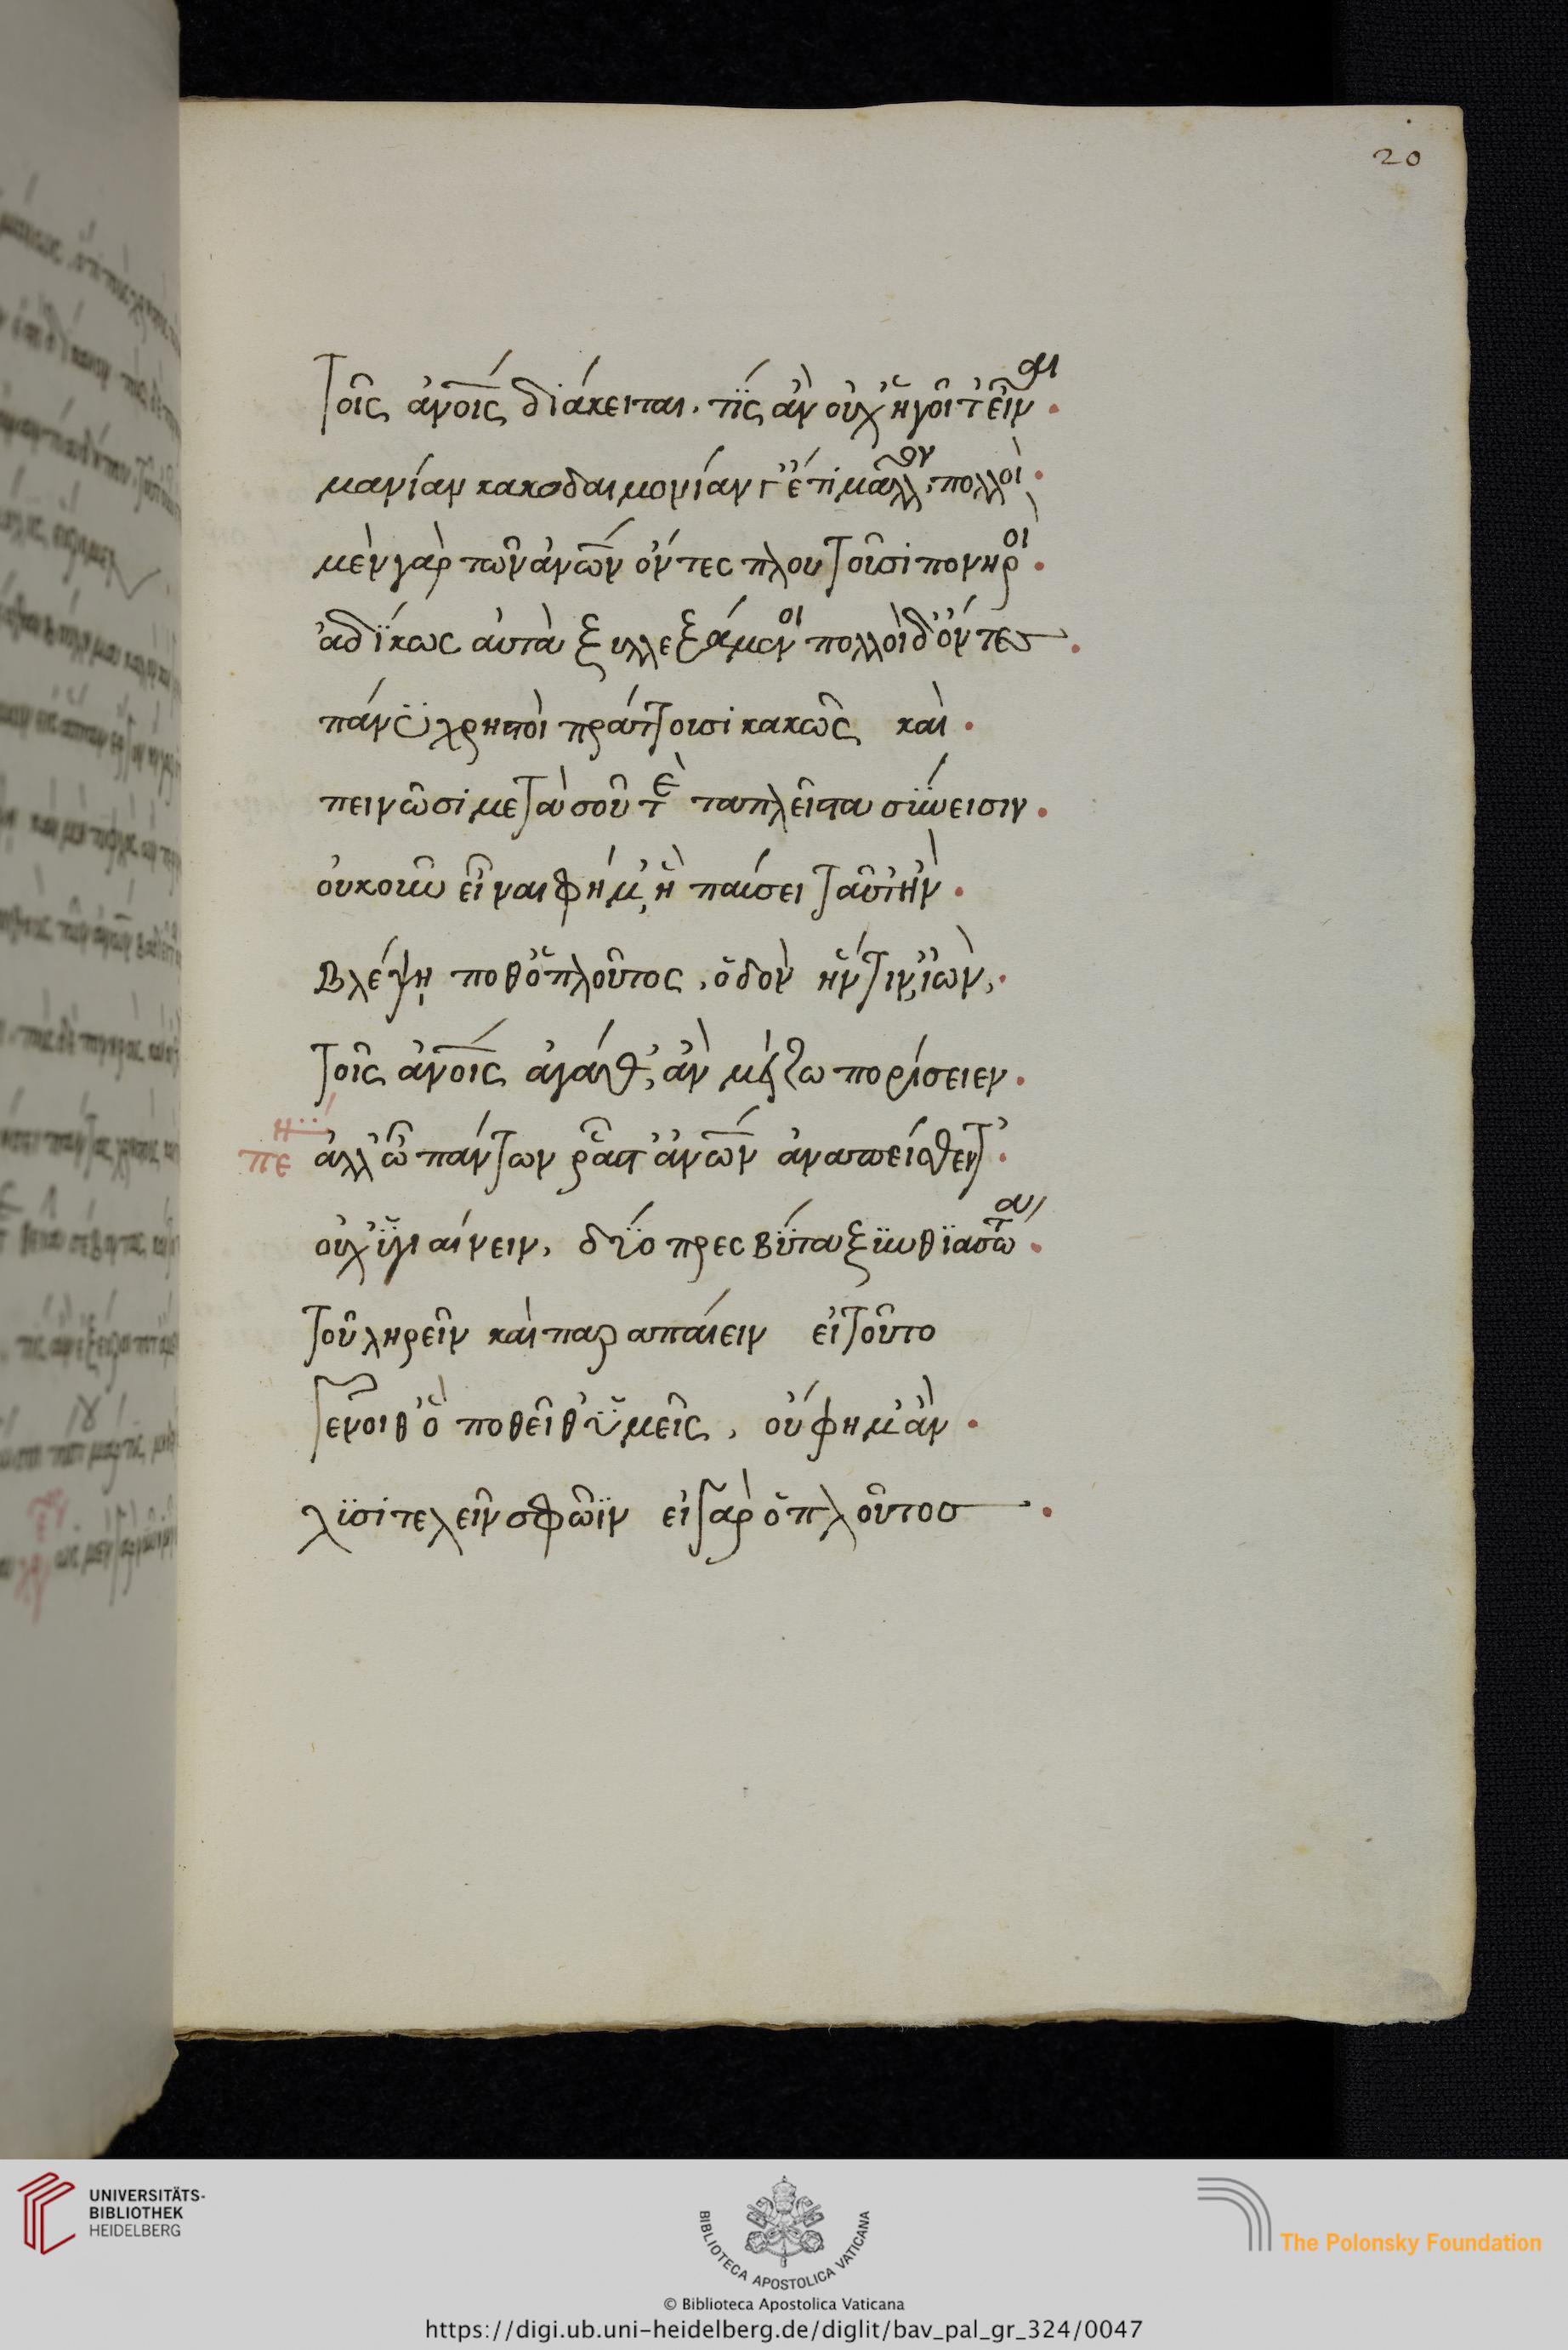 20
τοῖς ἀνοῖς διάκειται. τίς ἂν οὐχ ἡγοῖτ εἶναι
μανίαν κακοδαιμονίαν τ' ἔτι μᾶλλον, πολλοὶ
μὲν γὰρ τῶν ἀνῶν ὄντες πλουτοῦσι πονηροὶ
ἀδίκως αὐτὰ ξυλλεξάμενοι πολλοὶ δ' ὄντες
πάνυ χρηστοὶ πράττουσι κακῶς καὶ
πεινῶσι μετὰ σοῦ τὲ τα πλεῖστα σύνεισιν
οὐκοῦν εἶναι φήμ', ἢ παύσει ταῦτ ἢν
βλέψῃ ποθ' ὁ πλοῦτος, ὁδὸν ἥντιν' ἰὼν,
τοῖς ἀνοῖς ἀγάθ', ἂν μείζω πορίσειεν
πενί ἀλλ' ὦ πάντων ῥᾷστ' ἀνῶν ἀναπεισθέντ'
οὐχ ὑγιαίνειν, δύο πρεσβύτα ξυνθιασώτα
τοῦ ληρεῖν καὶ παραπαίειν εἰ τοῦτο
γένοιθ' ὃ ποθεῖθ' ὑμεῖς, οὔ φημ' ἂν
λυσιτελεῖν σφῶϊν εἰ γὰρ ὁ πλοῦτος
UNIVERSITÄTS-
BIBLIOTHEK
HEIDELBERG
BIBLIOTECA APOSTOLICA VATICANA
The Polonsky Foundation
© Biblioteca Apostolica Vaticana
https://digi.ub.uni-heidelberg.de/diglit/bav_pal_gr_324/0047